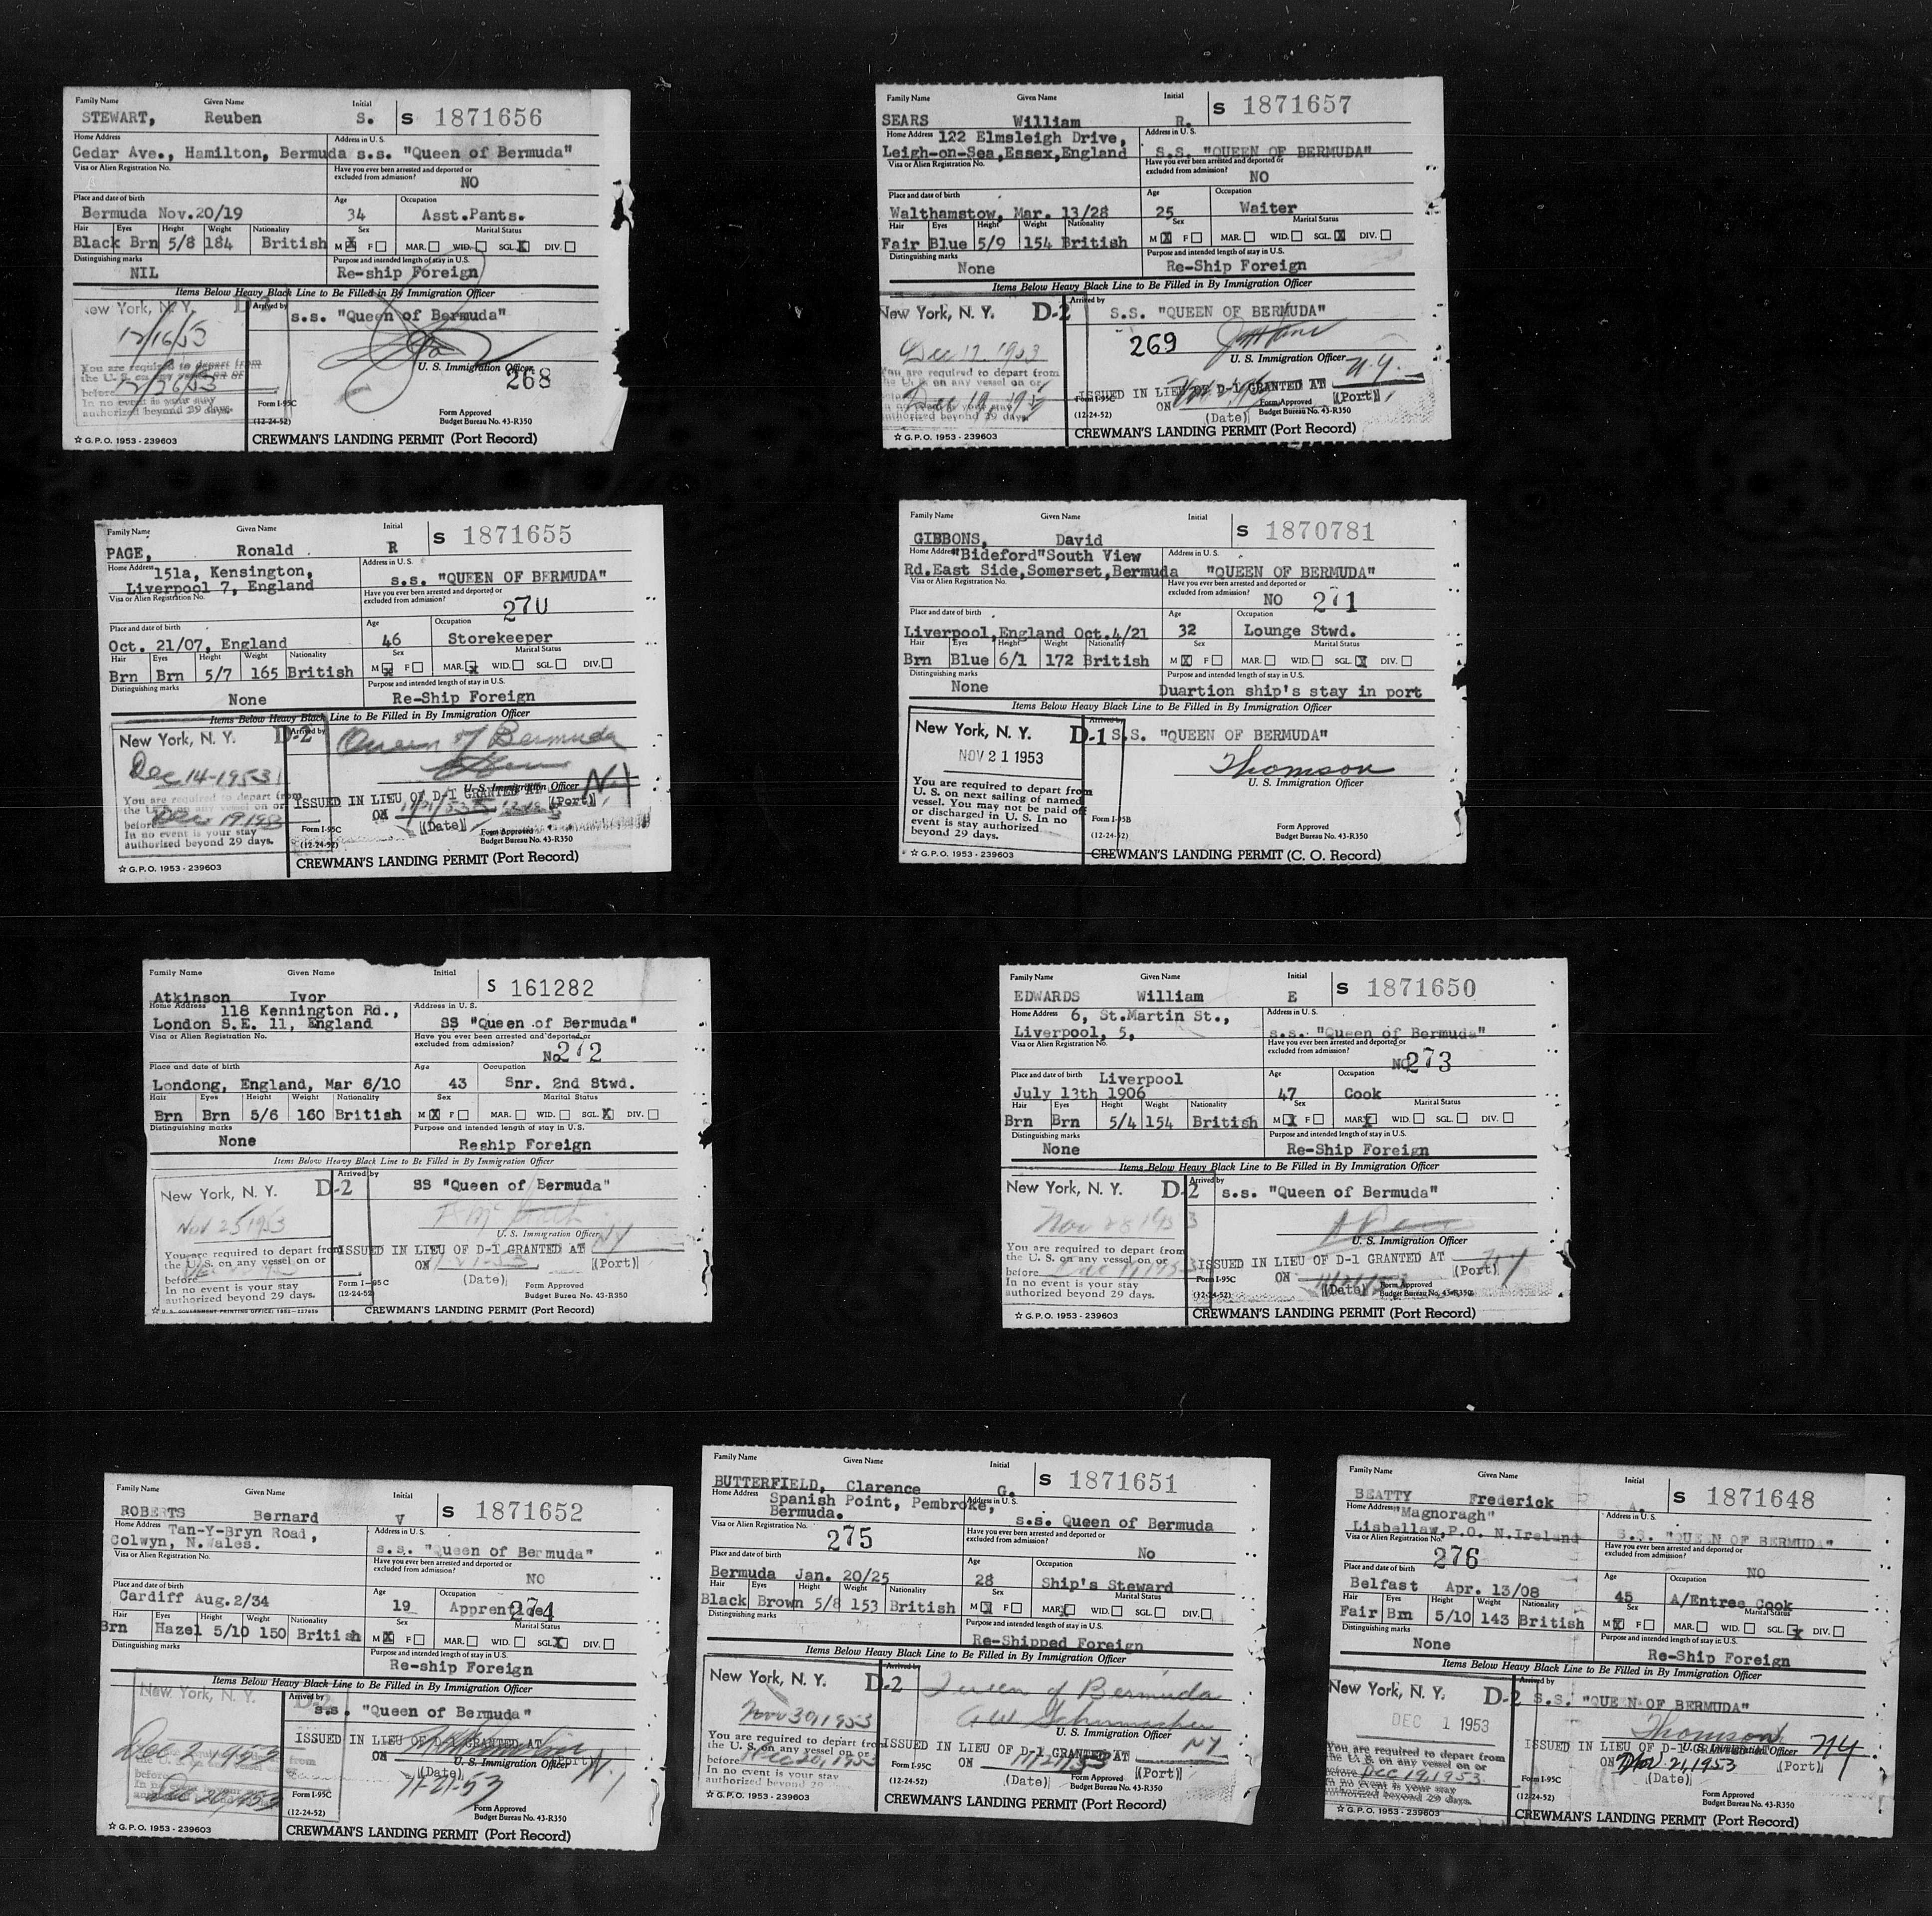 Family Name Given Name Initial
STEWART, Reuben S. S 1871656
Home Address Address in U. S.
Cedar Ave., Hamilton, Bermuda s.s. "Queen of Bermuda"
Visa or Alien Registration No. Have you ever been arrested and deported or
excluded from admission?
NO
Place and date of birth Age Occupation
Bermuda Nov.20/19 34 Asst.Pants.
Hair Eyes Height Weight Nationality Sex Marital Status
Black Brn 5/8 184 British M X F MAR. WID. SGL. X DIV.
Distinguishing marks Purpose and intended length of stay in U.S.
NIL Re-ship Foreign
Items Below Heavy Black Line to Be Filled in By Immigration Officer
New York, N. Y. D-2 Arrived by
s.s. "Queen of Bermuda"
12/16/53
You are required to depart from
the U. S. on any vessel on or
before 12/26/53
In no event is your stay
authorized beyond 29 days.
U. S. Immigration Officer
268
Form I-95C
(12-24-52)
Form Approved
Budget Bureau No. 43-R350
☆ G.P.O. 1953 - 239603 CREWMAN'S LANDING PERMIT (Port Record)
Family Name Given Name Initial
SEARS William R. S 1871657
Home Address 122 Elmsleigh Drive, Address in U. S.
Leigh-on-Sea,Essex,England S.S. "QUEEN OF BERMUDA"
Visa or Alien Registration No. Have you ever been arrested and deported or
excluded from admission?
NO
Place and date of birth Age Occupation
Walthamstow, Mar. 13/28 25 Waiter
Hair Eyes Height Weight Nationality Sex Marital Status
Fair Blue 5/9 154 British M X F MAR. WID. SGL. X DIV.
Distinguishing marks Purpose and intended length of stay in U.S.
None Re-Ship Foreign
Items Below Heavy Black Line to Be Filled in By Immigration Officer
New York, N. Y. D-2 Arrived by
S.S. "QUEEN OF BERMUDA"
269
Dec 17 1953
U. S. Immigration Officer
You are required to depart from
the U. S. on any vessel on or
Dec 19 1953
authorized beyond 29 days
ISSUED IN LIEU OF D-1 GRANTED AT N.Y.
ON (Date) (Port)
Form I-95C
(12-24-52)
Form Approved
Budget Bureau No. 43-R350
☆ G.P.O. 1953 - 239603 CREWMAN'S LANDING PERMIT (Port Record)
Family Name Given Name Initial
PAGE, Ronald R S 1871655
Home Address 151a, Kensington, Address in U. S.
Liverpool 7, England s.s. "QUEEN OF BERMUDA"
Visa or Alien Registration No. Have you ever been arrested and deported or
excluded from admission?
270
Place and date of birth Age Occupation
Oct. 21/07, England 46 Storekeeper
Hair Eyes Height Weight Nationality Sex Marital Status
Brn Brn 5/7 165 British M X F MAR. X WID. SGL. DIV.
Distinguishing marks Purpose and intended length of stay in U.S.
None Re-Ship Foreign
Items Below Heavy Black Line to Be Filled in By Immigration Officer
New York, N. Y. D-2 Arrived by
Queen of Bermuda
Dec 14-1953
U. S. Immigration Officer
You are required to depart from
the U. S. on any vessel on or
before Dec 19 1953
In no event is your stay
authorized beyond 29 days.
ISSUED IN LIEU OF D-1 GRANTED AT N.Y
ON (Date) (Port)
Form I-95C
(12-24-52)
Form Approved
Budget Bureau No. 43-R350
☆ G.P.O. 1953 - 239603 CREWMAN'S LANDING PERMIT (Port Record)
Family Name Given Name Initial
GIBBONS, David S 1870781
Home Address "Bideford"South View Address in U. S.
Rd.East Side,Somerset,Bermuda "QUEEN OF BERMUDA"
Visa or Alien Registration No. Have you ever been arrested and deported or
excluded from admission?
NO 271
Place and date of birth Age Occupation
Liverpool,England Oct.4/21 32 Lounge Stwd.
Hair Eyes Height Weight Nationality Sex Marital Status
Brn Blue 6/1 172 British M X F MAR. WID. SGL. X DIV.
Distinguishing marks Purpose and intended length of stay in U.S.
None Duartion ship's stay in port
Items Below Heavy Black Line to Be Filled in By Immigration Officer
New York, N. Y. D-1 Arrived by
S.S. "QUEEN OF BERMUDA"
NOV 21 1953
Thomson
U. S. Immigration Officer
You are required to depart from
U. S. on next sailing of named
vessel. You may not be paid off
or discharged in U. S. In no
event is stay authorized
beyond 29 days.
Form I-95B
(12-24-52)
Form Approved
Budget Bureau No. 43-R350
☆ G.P.O. 1953 - 239603 CREWMAN'S LANDING PERMIT (C. O. Record)
Family Name Given Name Initial
Atkinson Ivor S 161282
Home Address 118 Kennington Rd., Address in U. S.
London S.E. 11, England SS "Queen of Bermuda"
Visa or Alien Registration No. Have you ever been arrested and deported or
excluded from admission?
No 272
Place and date of birth Age Occupation
Londong, England, Mar 6/10 43 Snr. 2nd Stwd.
Hair Eyes Height Weight Nationality Sex Marital Status
Brn Brn 5/6 160 British M X F MAR. WID. SGL. X DIV.
Distinguishing marks Purpose and intended length of stay in U. S.
None Reship Foreign
Items Below Heavy Black Line to Be Filled in By Immigration Officer
New York, N. Y. D-2 Arrived by
SS "Queen of Bermuda"
Nov 25 1953
U. S. Immigration Officer
You are required to depart from
the U. S. on any vessel on or
before
In no event is your stay
authorized beyond 29 days.
ISSUED IN LIEU OF D-1 GRANTED AT NY
ON (Date) (Port)
Form I-95 C
(12-24-52)
Form Approved
Budget Bureau No. 43-R350
☆ U. S. GOVERNMENT PRINTING OFFICE: 1952 CREWMAN'S LANDING PERMIT (Port Record)
Family Name Given Name Initial
EDWARDS William E S 1871650
Home Address 6, St.Martin St., Address in U. S.
Liverpool, 5, s.s. "Queen of Bermuda"
Visa or Alien Registration No. Have you ever been arrested and deported or
excluded from admission?
NO 273
Place and date of birth Liverpool Age Occupation
July 13th 1906 47 Cook
Hair Eyes Height Weight Nationality Sex Marital Status
Brn Brn 5/4 154 British M X F MAR. X WID. SGL. DIV.
Distinguishing marks Purpose and intended length of stay in U.S.
None Re-Ship Foreign
Items Below Heavy Black Line to Be Filled in By Immigration Officer
New York, N. Y. D-2 Arrived by
s.s. "Queen of Bermuda"
Nov 28 1953
U. S. Immigration Officer
You are required to depart from
the U. S. on any vessel on or
before
In no event is your stay
authorized beyond 29 days.
ISSUED IN LIEU OF D-1 GRANTED AT NY
ON 11/21/53 (Date) (Port)
Form I-95C
(12-24-52)
Form Approved
Budget Bureau No. 43-R350
☆ G.P.O. 1953 - 239603 CREWMAN'S LANDING PERMIT (Port Record)
Family Name Given Name Initial
ROBERTS Bernard V S 1871652
Home Address Tan-Y-Bryn Road, Address in U. S.
Colwyn, N.Wales. s.s. "Queen of Bermuda"
Visa or Alien Registration No. Have you ever been arrested and deported or
excluded from admission?
NO
Place and date of birth Age Occupation
Cardiff Aug.2/34 19 Apprentice 274
Hair Eyes Height Weight Nationality Sex Marital Status
Brn Hazel 5/10 150 British M X F MAR. WID. SGL. X DIV.
Distinguishing marks Purpose and intended length of stay in U.S.
Re-ship Foreign
Items Below Heavy Black Line to Be Filled in By Immigration Officer
New York, N. Y. D-2 Arrived by
s.s. "Queen of Bermuda"
ISSUED IN LIEU OF D-1 GRANTED AT
Dec 2 1953
ON U. S. Immigration Officer (Port) N.Y
(Date)
11-21-53
Dec 20 1953
Form I-95C
(12-24-52)
Form Approved
Budget Bureau No. 43-R350
☆ G.P.O. 1953 - 239603 CREWMAN'S LANDING PERMIT (Port Record)
Family Name Given Name Initial
BUTTERFIELD, Clarence G. S 1871651
Home Address Spanish Point, Pembroke, Address in U. S.
Bermuda. s.s. Queen of Bermuda
Visa or Alien Registration No. Have you ever been arrested and deported or
275 excluded from admission?
No
Place and date of birth Age Occupation
Bermuda Jan. 20/25 28 Ship's Steward
Hair Eyes Height Weight Nationality Sex Marital Status
Black Brown 5/8 153 British M X F MAR. X WID. SGL. DIV.
Distinguishing marks Purpose and intended length of stay in U.S.
Re-Shipped Foreign
Items Below Heavy Black Line to Be Filled in By Immigration Officer
New York, N. Y. D-2 Arrived by
Queen of Bermuda
Nov 30, 1953
U. S. Immigration Officer
You are required to depart from
the U. S. on any vessel on or
before Dec 20, 1953
In no event is your stay
authorized beyond 29
ISSUED IN LIEU OF D-1 GRANTED AT NY
ON 11/21/53 (Date) (Port)
Form I-95C
(12-24-52)
Form Approved
Budget Bureau No. 43-R350
☆ G.P.O. 1953 - 239603 CREWMAN'S LANDING PERMIT (Port Record)
Family Name Given Name Initial
BEATTY Frederick A. S 1871648
Home Address "Magnoragh" Address in U. S.
Lisbellaw,P.O. N.Ireland S.S. "QUEEN OF BERMUDA"
Visa or Alien Registration No. Have you ever been arrested and deported or
276 excluded from admission?
NO
Place and date of birth Age Occupation
Belfast Apr. 13/08 45 A/Entree Cook
Hair Eyes Height Weight Nationality Sex Marital Status
Fair Brn 5/10 143 British M X F MAR. WID. SGL. X DIV.
Distinguishing marks Purpose and intended length of stay in U.S.
None Re-Ship Foreign
Items Below Heavy Black Line to Be Filled in By Immigration Officer
New York, N. Y. D-2 Arrived by
S.S. "QUEEN OF BERMUDA"
DEC 1 1953
Thomson
U. S. Immigration Officer
You are required to depart from
the U. S. on any vessel on or
before DEC 19, 1953
In no event is your stay
authorized beyond 29 days.
ISSUED IN LIEU OF D-1 GRANTED AT NY
ON Nov. 21, 1953 (Date) (Port)
Form I-95C
(12-24-52)
Form Approved
Budget Bureau No. 43-R350
☆ G.P.O. 1953 - 239603 CREWMAN'S LANDING PERMIT (Port Record)